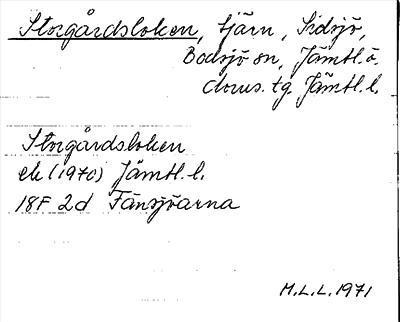 Storgårdsloken, tjärn, Sidsjö,
Bodsjö sn, Jämtl. ö.
doms.tg Jämtl. l.
Storgårdsloken
ek (1970) Jämtl. l.
18F 2d Fänsjöarna
M.L.L. 1971